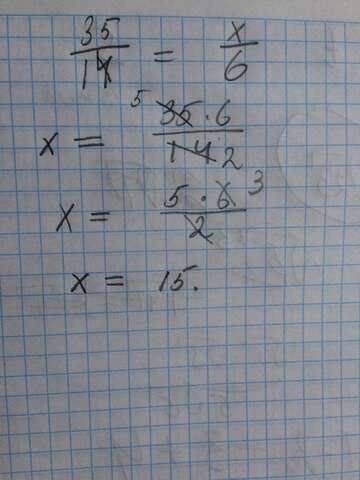 35/14 = x/6
x = 5 35·6/14 2
x = 5·6 3/2
x = 15.